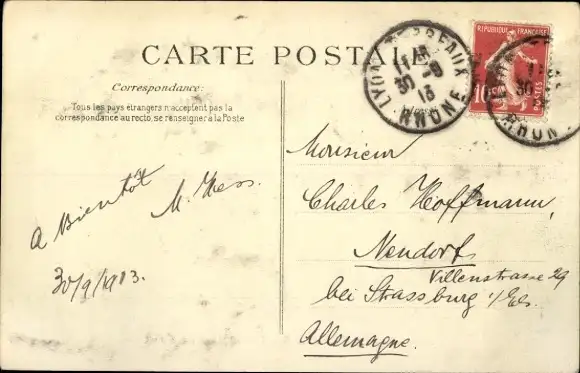 CARTE POSTALE
Correspondance:
Tous les pays étrangers n'acceptent pas la
correspondance au recto, se renseigner à la Poste
A Bientôt
M. Hess.
30/9/1913.
LYON TERREAUX
30 -9
13
RHONE
REPUBLIQUE FRANÇAISE
10
POSTES
30
RHON
Monsieur
Charles Hoffmann,
Neudorf
Villenstrasse 29
bei Strassburg i/Els.
Allemagne.